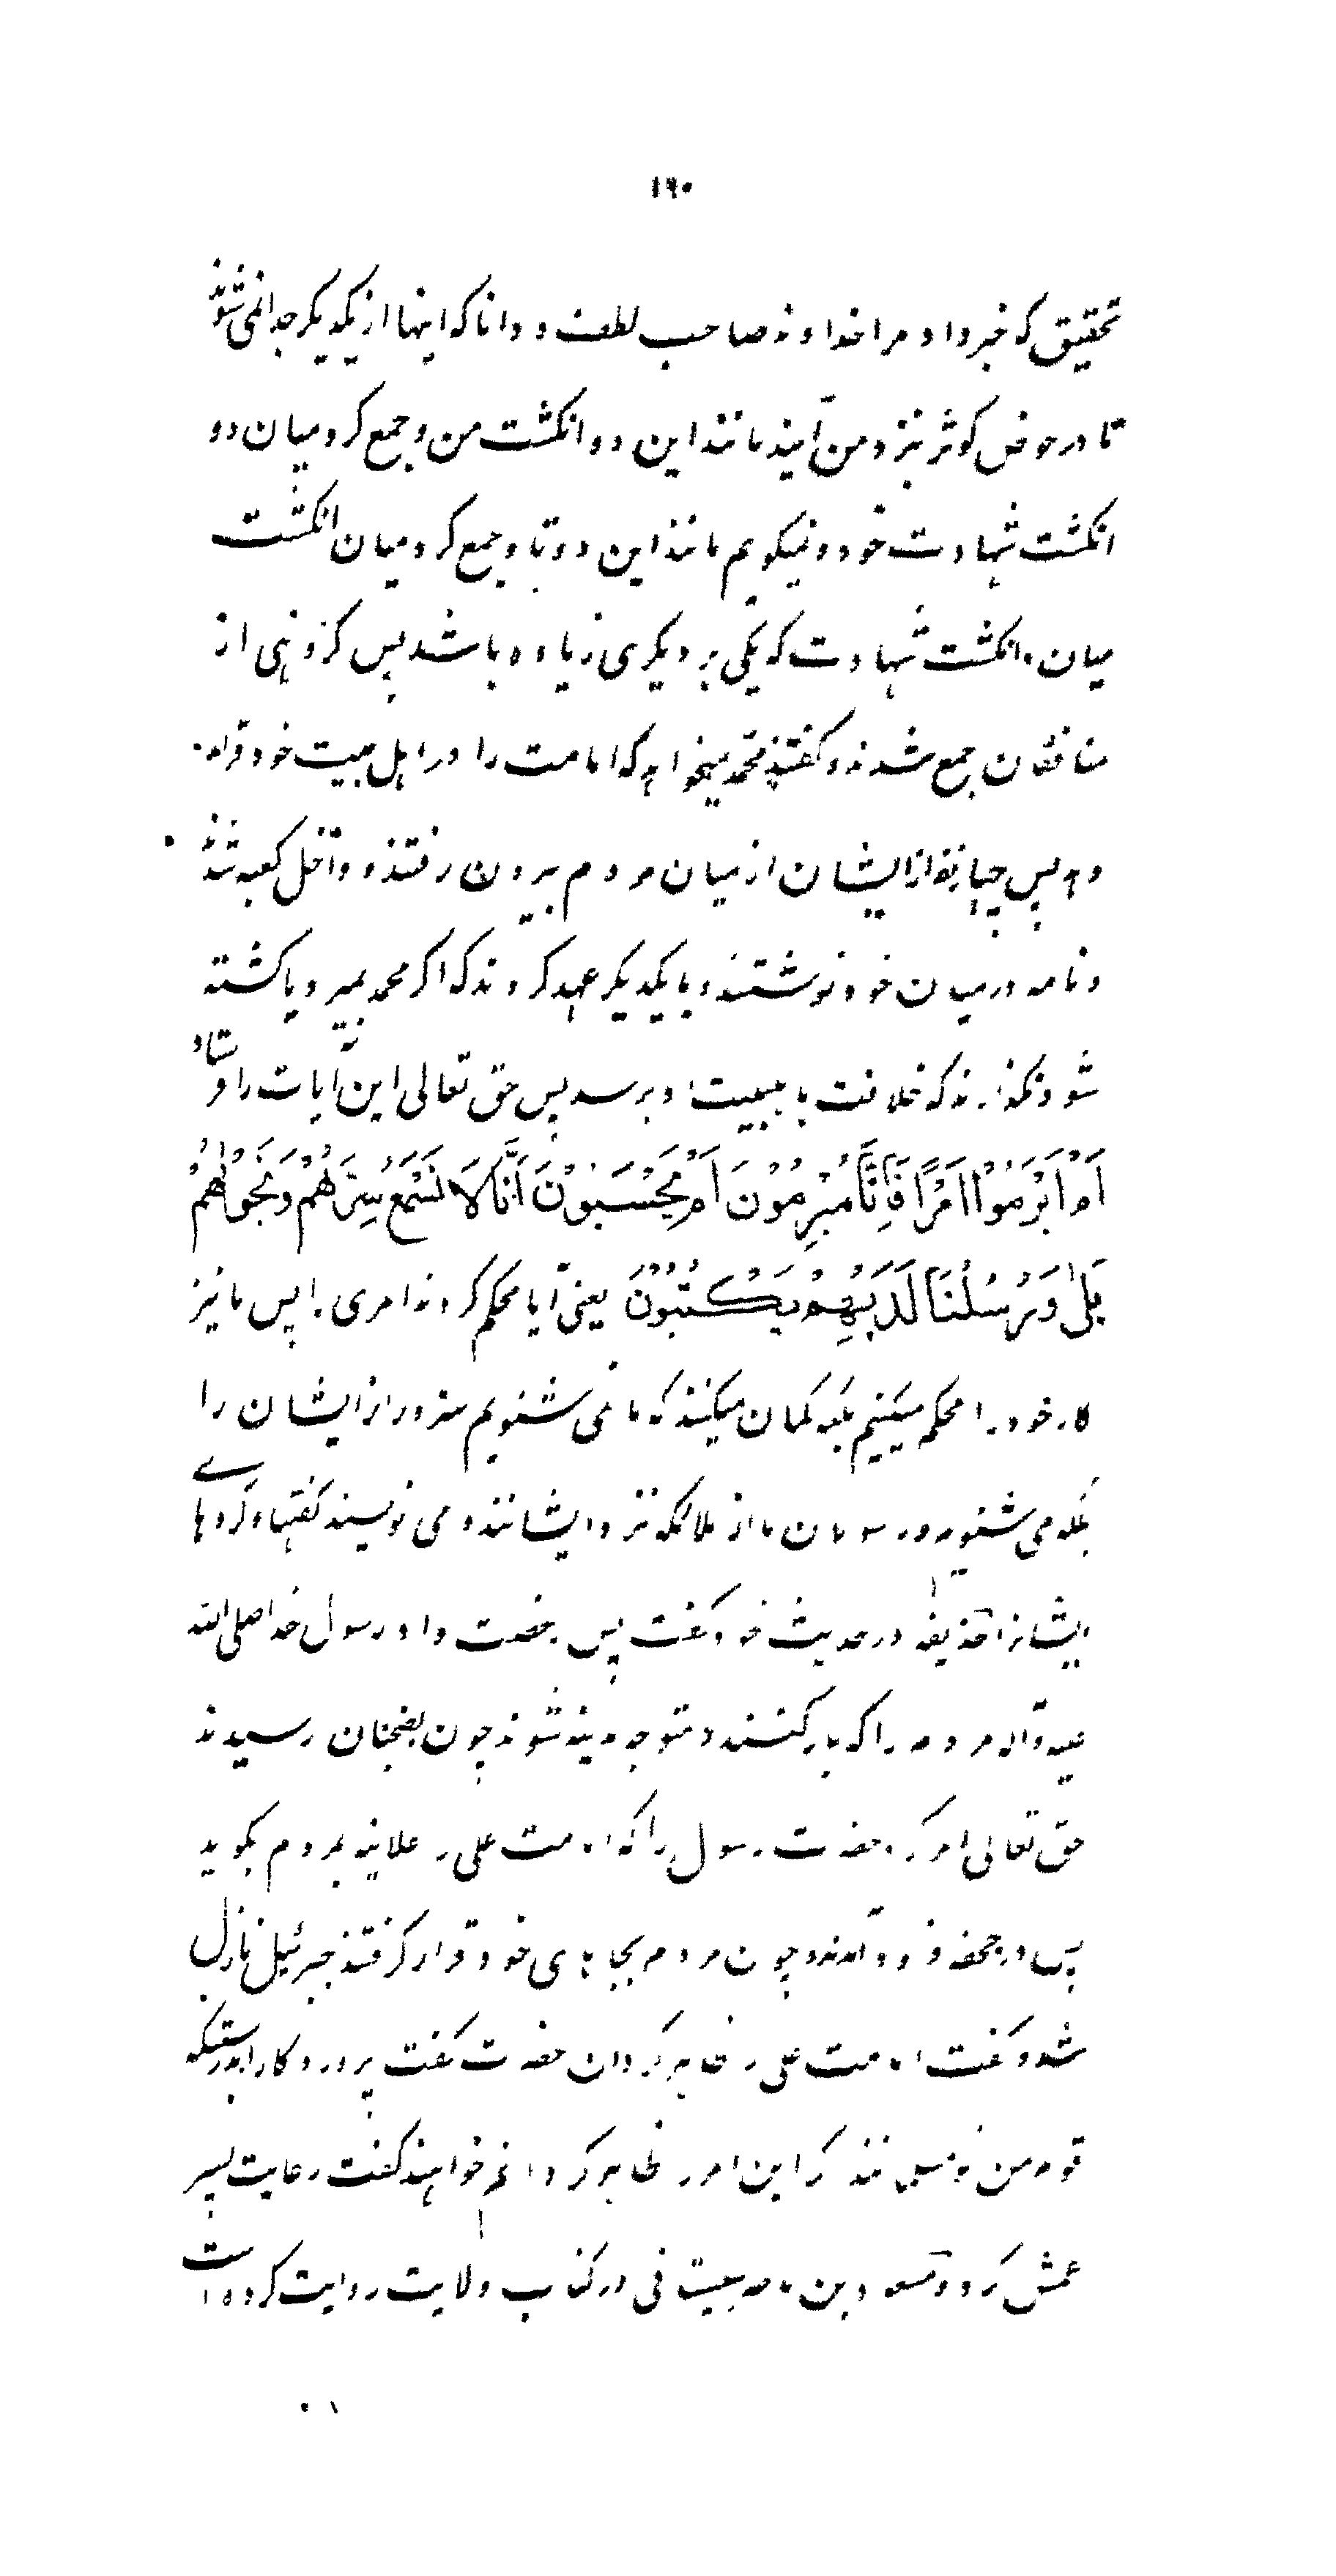 ١٦٠
تحقیق که خبر داد مرا خداوند صاحب لطف و دانا که اینها از یکدیکر جدا نمی شوند
تا در حوض کوثر بنزد من آیند مانند این دو انکشت من و جمع کرد میان دو
انکشت شهادت خود و نمیکویم مانند این دو تا و جمع کرد میان انکشت
میان و انکشت شهادت که یکی بر دیکری زیاده باشد پس کروهی از
منافقان جمع شدند و کفتند محمد میخواهد که امامت را در اهل بیت خود قرار
دهد پس چهار نفر از ایشان از میان مردم بیرون رفتند و داخل کعبه شدند
و نامه در میان خود نوشتند و با یکدیکر عهد کردند که اکر محمد بمیرد یا کشته
شود نکذارند که خلافت باهلبیت او برسد پس حق تعالی این آیات را فرستاد
اَمْ اَبْرَمُوْا اَمْرًا فَاِنَّا مُبْرِمُوْنَ اَمْ یَحْسَبُوْنَ اَنَّا لَا نَسْمَعُ سِرَّهُمْ وَ نَجْوٰهُمْ
بَلٰی وَ رُسُلُنَا لَدَیْهِمْ یَکْتُبُوْنَ یعنی آیا محکم کردند امری را پس ما نیز
کار خود را محکم میکنیم بلکه کمان میکنند که ما نمی شنویم سر و راز ایشان را
بلکه می شنویم و رسولان ما از ملائکه نزد ایشانند و می نویسند کفتها و کردهای
ایشانرا حذیفه در حدیث خود کفت پس رخصت داد رسول خدا صلی الله
علیه و آله مردم را که بار کنند و متوجه مدینه شوند چون بضجنان رسیدند
حق تعالی امر کرد حضرت رسول را که امامت علی را علانیه بمردم بکوید
پس در جحفه فرود آمدند و چون مردم بجاهای خود قرار کرفتند جبرئیل نازل
شد و کفت امامت علی را ظاهر کردان حضرت کفت پروردکارا بدرستیکه
قوم من نو مسلمانند اکر این امر را ظاهر کردانم خواهند کفت رعایت پسر
عمش کرد و مسعود بن ناصر سجستانی در کتاب ولایت روایت کرده است